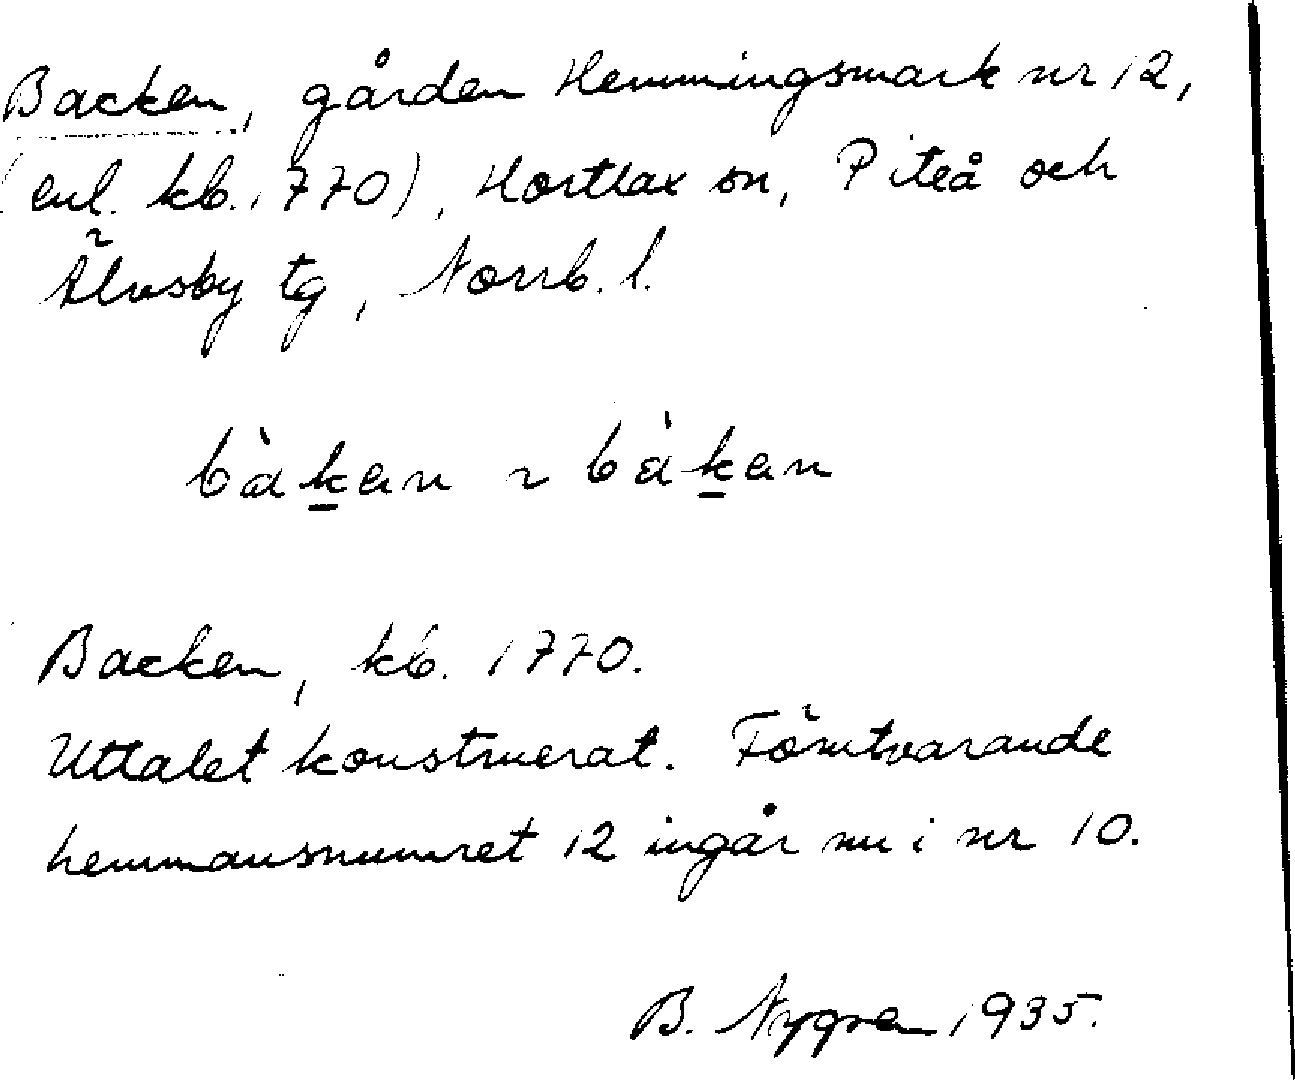 Backen, gården Hemmingsmark nr 12,
(enl. kb. 1770), Hortlax sn, Piteå och
Älvsby tg, Norrb. l.
bàken ~ bàken
Backen, kb. 1770.
Uttalet konstruerat. Förutvarande
hemmansnumret 12 ingår nu i nr 10.
B. Nygren 1935.